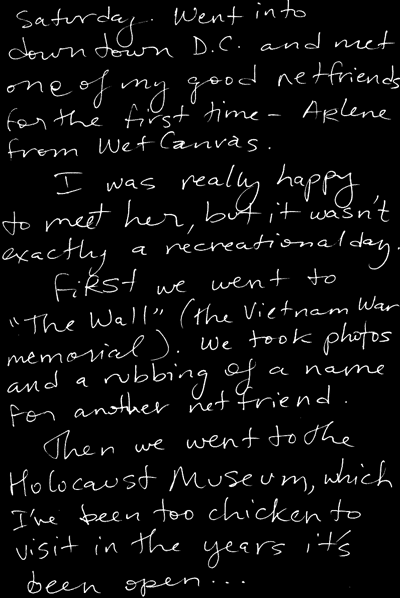 Saturday. Went into
downtown D.C. and met
one of my good netfriends
for the first time – Arlene
from WetCanvas.
I was really happy
to meet her, but it wasn't
exactly a recreational day.
First we went to
"The Wall" (the Vietnam War
memorial). We took photos
and a rubbing of a name
for another netfriend.
Then we went to the
Holocaust Museum, which
I've been too chicken to
visit in the years it's
been open...